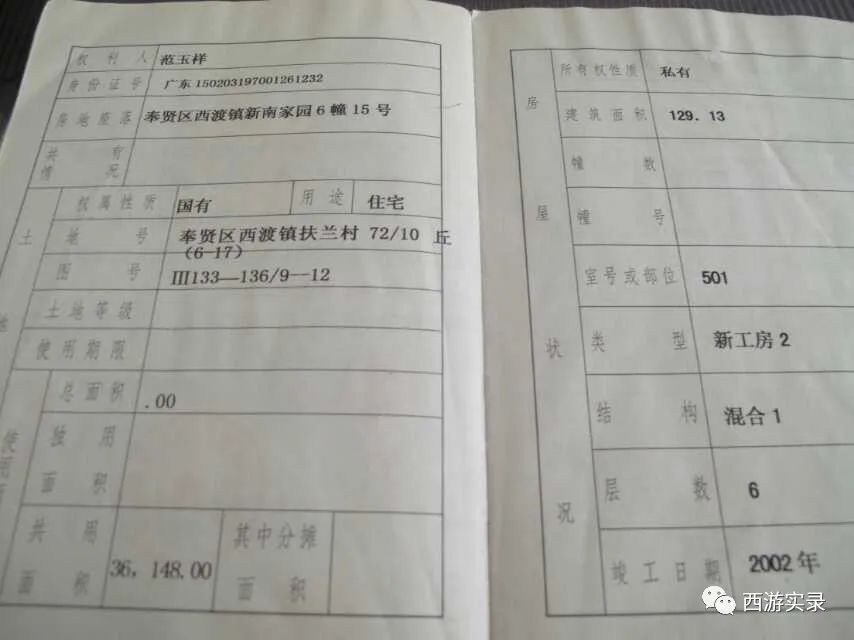 权利人 范玉祥
身份证号 广东 150203197001261232
房地座落 奉贤区西渡镇新南家园6幢15号
共有情况
土地
权属性质 国有 用途 住宅
地号 奉贤区西渡镇扶兰村 72/10 丘
(6-17)
图号 III133—136/9--12
土地等级
使用期限
使用
总面积 .00
独用面积
共用面积 36,148.00 其中分摊面积
房屋状况
所有权性质 私有
建筑面积 129.13
幢数
幢号
室号或部位 501
类型 新工房2
结构 混合1
层数 6
竣工日期 2002年
西游实录